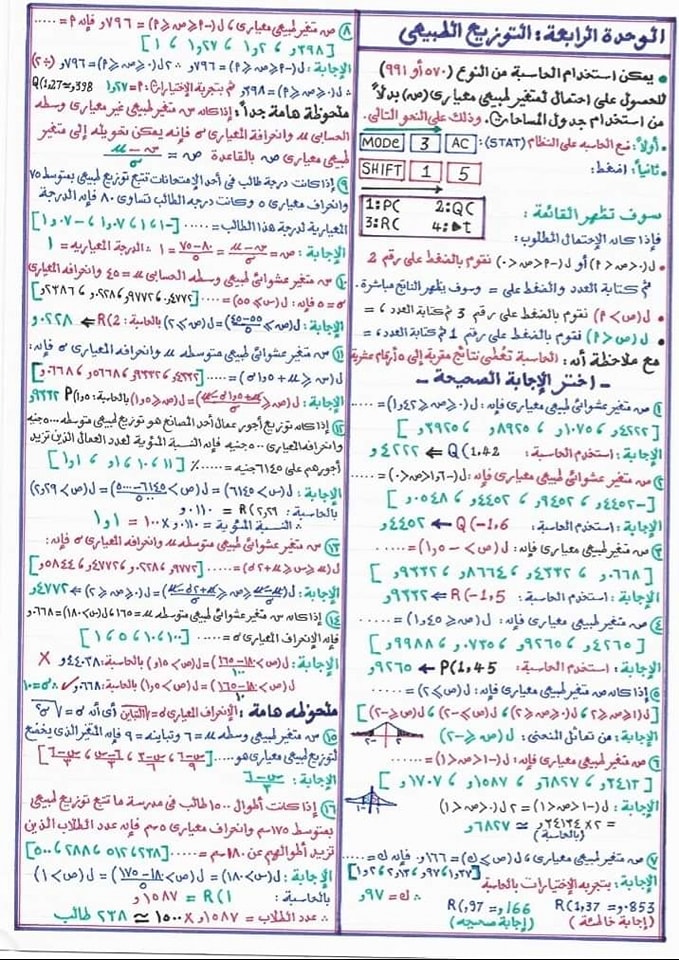 الوحدة الرابعة: التوزيع الطبيعى
• يمكن استخدام الحاسبة من النوع (٥٧٠ أو ٩٩١)
للحصول على احتمال لمتغير طبيعى معيارى (ص) بدلاً
من استخدام جدول المساحات، وذلك على النحو التالى.
• أولاً: نضع الحاسبه على النظام (STAT): MODE 3 AC
• ثانياً: اضغط: SHIFT 1 5
سوف تظهر القائمة:
1:PC 2:QC
3:RC 4:▶t
فإذا كان الإحتمال المطلوب:
• ل(٠<ص<P) أو ل(-P<ص<٠) نقوم بالضغط على رقم 2
ثم كتابة العدد والضغط على = وسوف يظهر الناتج مباشرة.
• ل(ص>P) نقوم بالضغط على رقم 3 ثم كتابة العدد، =
• ل(ص<P) نقوم بالضغط على رقم 1 ثم كتابة العدد، =
مع ملاحظة أنه: الحاسبة تعطى نتائج مقربة إلى ٥ أرقام عشرية
- اختر الإجابة الصحيحة -
① ص متغير عشوائى طبيعى معيارى فإنه: ل(٠≤ص≤١,٤٢)= .....
[٤٢٢٢و ، ١٠٧٥و ، ٨٩٢٥و ، ٣٩٢٥و]
الإجابة: استخدم الحاسبة: Q(1,42 ← ٤٢٢٢و
② ص متغير عشوائى طبيعى معيارى فإنه: ل(-١,٦<ص<٠)= .....
[-٤٤٥٢و ، ٩٤٥٢و ، ٤٤٥٢و ، ٠٥٤٨و]
الإجابة: استخدم الحاسبة: Q(-1,6 ← ٤٤٥٢و
③ ص متغير طبيعى معيارى فإنه: ل(ص>-١,٥)= .....
[٠٦٦٨و ، ٤٣٣٢و ، ٨٦٦٤و ، ٩٣٣٢و]
الإجابة: استخدم الحاسبة: R(-1,5 ← ٩٣٣٢و
④ ص متغير طبيعى معيارى فإنه: ل(ص≤١,٤٥)= .....
[٤٢٦٥و ، ٩٢٦٥و ، ٠٧٣٥و ، ٩٩٨٨و]
الإجابة: استخدم الحاسبة: P(1,45 ← ٩٢٦٥و
⑤ إذا كان ص متغير طبيعى معيارى فإنه: ل(ص≤٢)= .....
الإجابة: من تماثل المنحنى: ل(ص≥-٢)
⑥ ص متغير طبيعى معيارى فإنه: ل(-١<ص<١)= .....
[٣٤١٣و ، ٦٨٢٧و ، ١٥٨٧و ، ١٧٠٧و]
الإجابة: ل(-١<ص<١) = ٢ل(٠<ص<١)
= ٢×٣٤١٣٤و ≃ ٦٨٢٧و
(بالحاسبة)
⑦ ص متغير طبيعى معيارى، ل(ص≥ك)=١٦٦و فإنه ك= .....
الإجابة: بتجربة الإختيارات بالحاسبة
R(1,37 =و0853 R(,97 =و166 ∴ك=٩٧و
(إجابة خاطئة) (إجابة صحيحه)
⑧ ص متغير طبيعى معيارى، ل(-P≤ص≤P)=٧٩٦و فإنه P= .....
[٣٩٨و ، ١,٢ ، ١,٢٧ ، ١]
الإجابة: ل(-P≤ص≤P)=٧٩٦و ∴٢ل(٠≤ص≤P)=٧٩٦و (÷٢)
∴ل(٠≤ص≤P)=٣٩٨و ثم بتجربة الإختيارات: P=١,٢٧ Q(1,27=و398
ملحوظة هامة جداً: إذا كان س متغير طبيعى غير معيارى وسطه
الحسابى μ وانحرافة المعيارى σ فإنه يمكن تحويله إلى متغير
طبيعى معيارى ص بالقاعدة ص = (س-μ)/σ
⑨ إذا كانت درجة طالب فى أحد الإمتحانات تتبع توزيع طبيعى بمتوسط ٧٥
وانحراف معيارى ٥ وكانت درجة الطالب تساوى ٨٠ فإنه الدرجة
المعيارية لدرجة هذا الطالب= .....
الإجابة: ص=(س-μ)/σ=(٨٠-٧٥)/٥=١ ∴الدرجة المعياريه = ١
⑩ س متغير عشوائى طبيعى وسطه الحسابى μ=٤٥ وانحرافه المعيارى
σ=٥ فإنه: ل(س≥٥٥)= ..... [٤٧٧٢و، ٩٧٧٢و، ٠٢٢٨و، ٢٣٨٦و]
الإجابة: ل(ص≥(٥٥-٤٥)/٥)=ل(ص≥٢) بالحاسبة: R(2 ← ٠٢٢٨و
⑪ س متغير عشوائى طبيعى متوسطه μ وانحرافه المعيارى σ فإنه:
ل(س≤μ+١,٥σ)= ..... [٤٣٣٢و، ٩٣٣٢و، ٥٦٦٨و، ٠٦٦٨و]
الإجابة: ل(ص≤(μ+١,٥σ-μ)/σ)=ل(ص≤١,٥) بالحاسبة: P(1,5 ٩٣٣٢و
⑫ إذا كان توزيع أجور عمال أحد المصانع هو توزيع طبيعى متوسطه ٥٠٠٠ جنيه
وانحرافه المعيارى ٥٠٠ جنيه فإنه النسبة المئوية لعدد العمال الذين تزيد
أجورهم على ٦١٤٥ جنيه= .....٪
الإجابة: ل(س>٦١٤٥)=ل(ص>(٦١٤٥-٥٠٠٠)/٥٠٠)=ل(ص>٢,٢٩)
بالحاسبة: R(2,29 = ٠١١٠و
∴ النسبة المئوية = ٠١١٠و × ١٠٠ = ١,١
⑬ س متغير عشوائى طبيعى متوسطه μ وانحرافه المعيارى σ فإنه:
ل(μ≤س≤μ+٢σ)= ..... [٩٧٧٢و، ٠٢٢٨و، ٤٧٧٢و، ٥٨٤٤و]
الإجابة: ل((μ-μ)/σ≤ص≤(μ+٢σ-μ)/σ)=ل(٠≤ص≤٢) ← ٤٧٧٢و
⑭ إذا كان س متغير عشوائى طبيعى متوسطه μ=١٦٥، ل(س>١٨٠)=٠٦٦٨و
فإنه الإنحراف المعيارى σ= ..... [١٠٠، ١٠، ٥، ١]
الإجابة: ل(ص>(١٨٠-١٦٥)/١٠٠)=ل(ص>١٥و) بالحاسبة: ٤٤٠٣٨و X
ل(ص>(١٨٠-١٦٥)/١٠)=ل(ص>١,٥) بالحاسبة: ٠٦٦٨و ✓ ∴σ=١٠
ملحوظه هامة: الإنحراف المعيارى σ=√التباين أى أنه σ=√σ²
⑮ س متغير طبيعى وسطه μ=٦ وتباينه=٩ فإنه المتغير الذى يخضع
لتوزيع طبيعى معيارى هو .....
الإجابة: (س-٦)/٣
⑯ إذا كانت أطوال ١٥٠٠ طالب فى مدرسة ما تتبع توزيع طبيعى
بمتوسط ١٧٥سم وانحراف معيارى ٥سم فإنه عدد الطلاب الذين
تزيد أطوالهم عن ١٨٠سم= ..... [٢٣٨، ٥١٢، ٢٨٨، ٥٠٠]
الإجابة: ل(س>١٨٠)=ل(ص>(١٨٠-١٧٥)/٥)=ل(ص>١)
بالحاسبة: R(1 = ١٥٨٧و
∴ عدد الطلاب = ١٥٨٧و×١٥٠٠ ≃ ٢٣٨ طالب